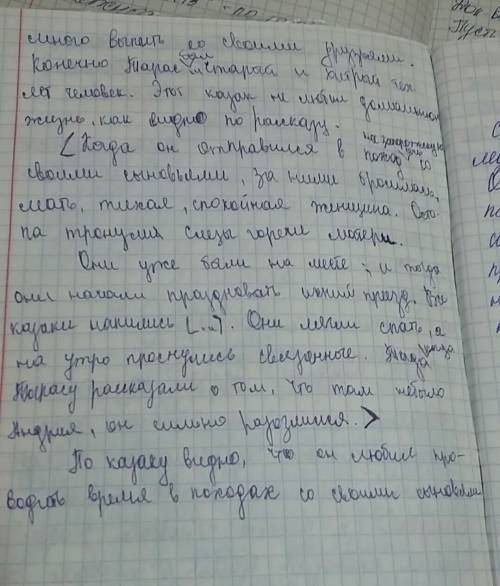 много выпить со своими друзьями.
Конечно Тарас был старый и хитрый тех
лет человек. Этот казак не любил домашнюю
жизнь, как видно по рассказу.
[Когда он отправился в поход со
своими сыновьями, за ними бросилась
мать, тихая, спокойная женщина. Оста-
па тронули слезы горехи матери.
Они уже были на месте, и тогда
они начали праздновать ихний приезд. Все
казаки напились [...]. Они легли спать, а
на утро проснулись связанные. Тогда когда
Тарасу рассказали о том, что там небыло
Андрия, он сильно разозлился.>
По казаку видно, что он любил про-
водить время в походах со своими сыновьями